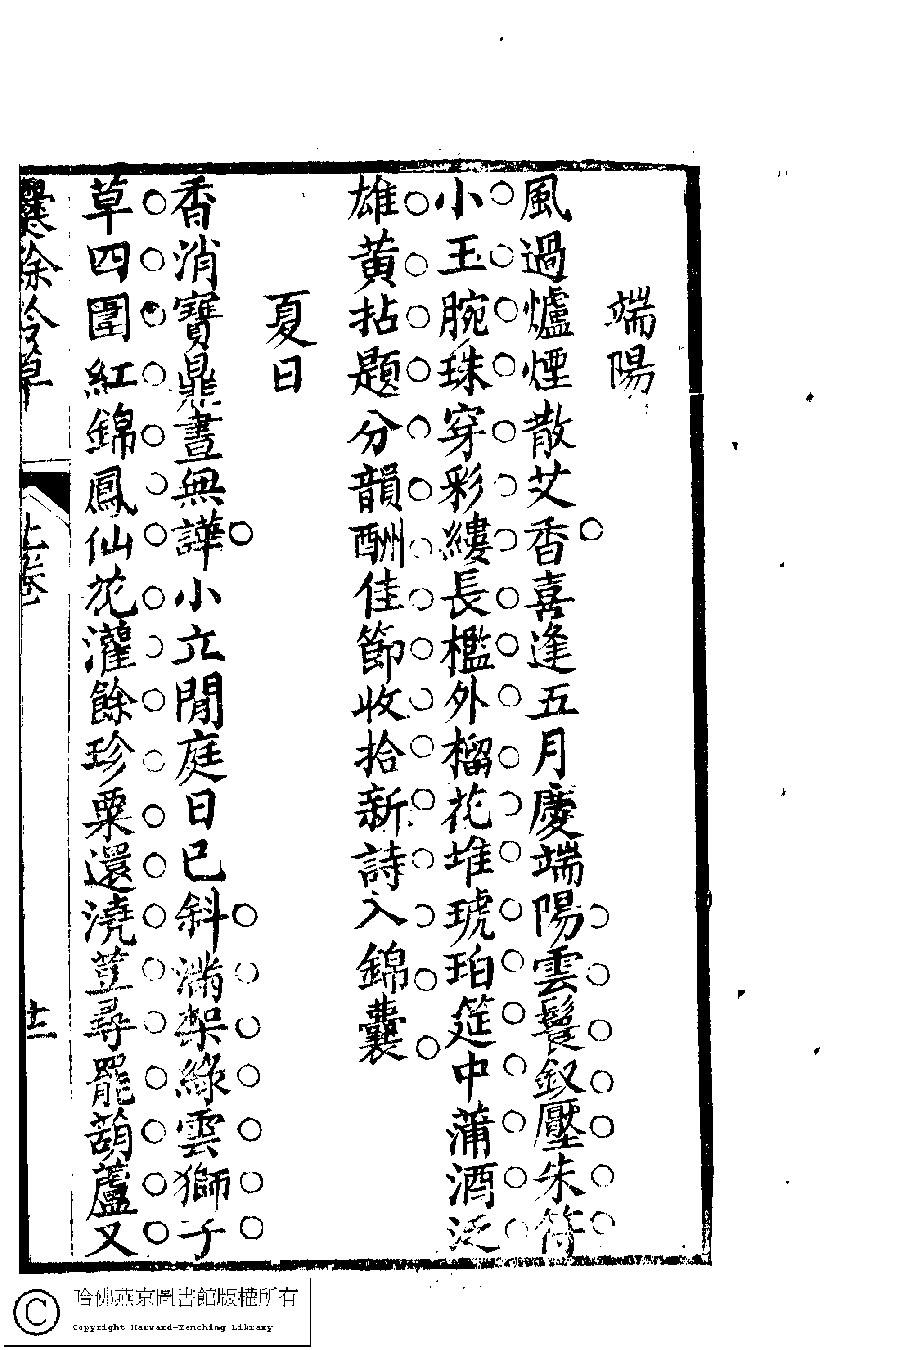 端陽
風過爐煙散艾香喜逢五月慶端陽雲鬟釵壓朱符
小玉腕珠穿彩縷長檻外榴花堆琥珀筵中蒲酒泛
雄黃拈題分韻酬佳節收拾新詩入錦囊
夏日
香消寶鼎晝無譁小立閒庭日已斜滿架綠雲獅子
草四圍紅錦鳳仙花灌餘珍粟還澆荳尋罷葫蘆又
爨餘吟草
上卷
廿二
哈佛燕京圖書館版權所有
Copyright Harvard-Yenching Library